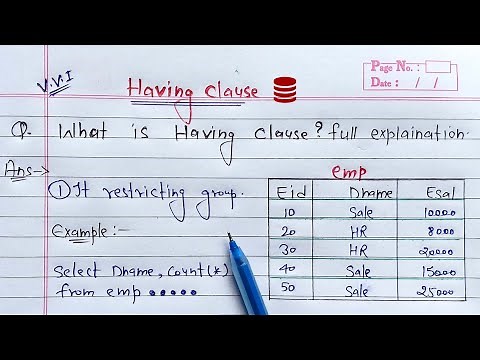 Page No. :
Date : / /
V.V.I
Having Clause
Q. What is Having Clause? full explaination.
Ans→
① It restricting group.
Example :-
Select Dname, Count(*)
from emp •••••
emp
Eid Dname Esal
10 Sale 10000
20 HR 8000
30 HR 20000
40 Sale 15000
50 Sale 25000